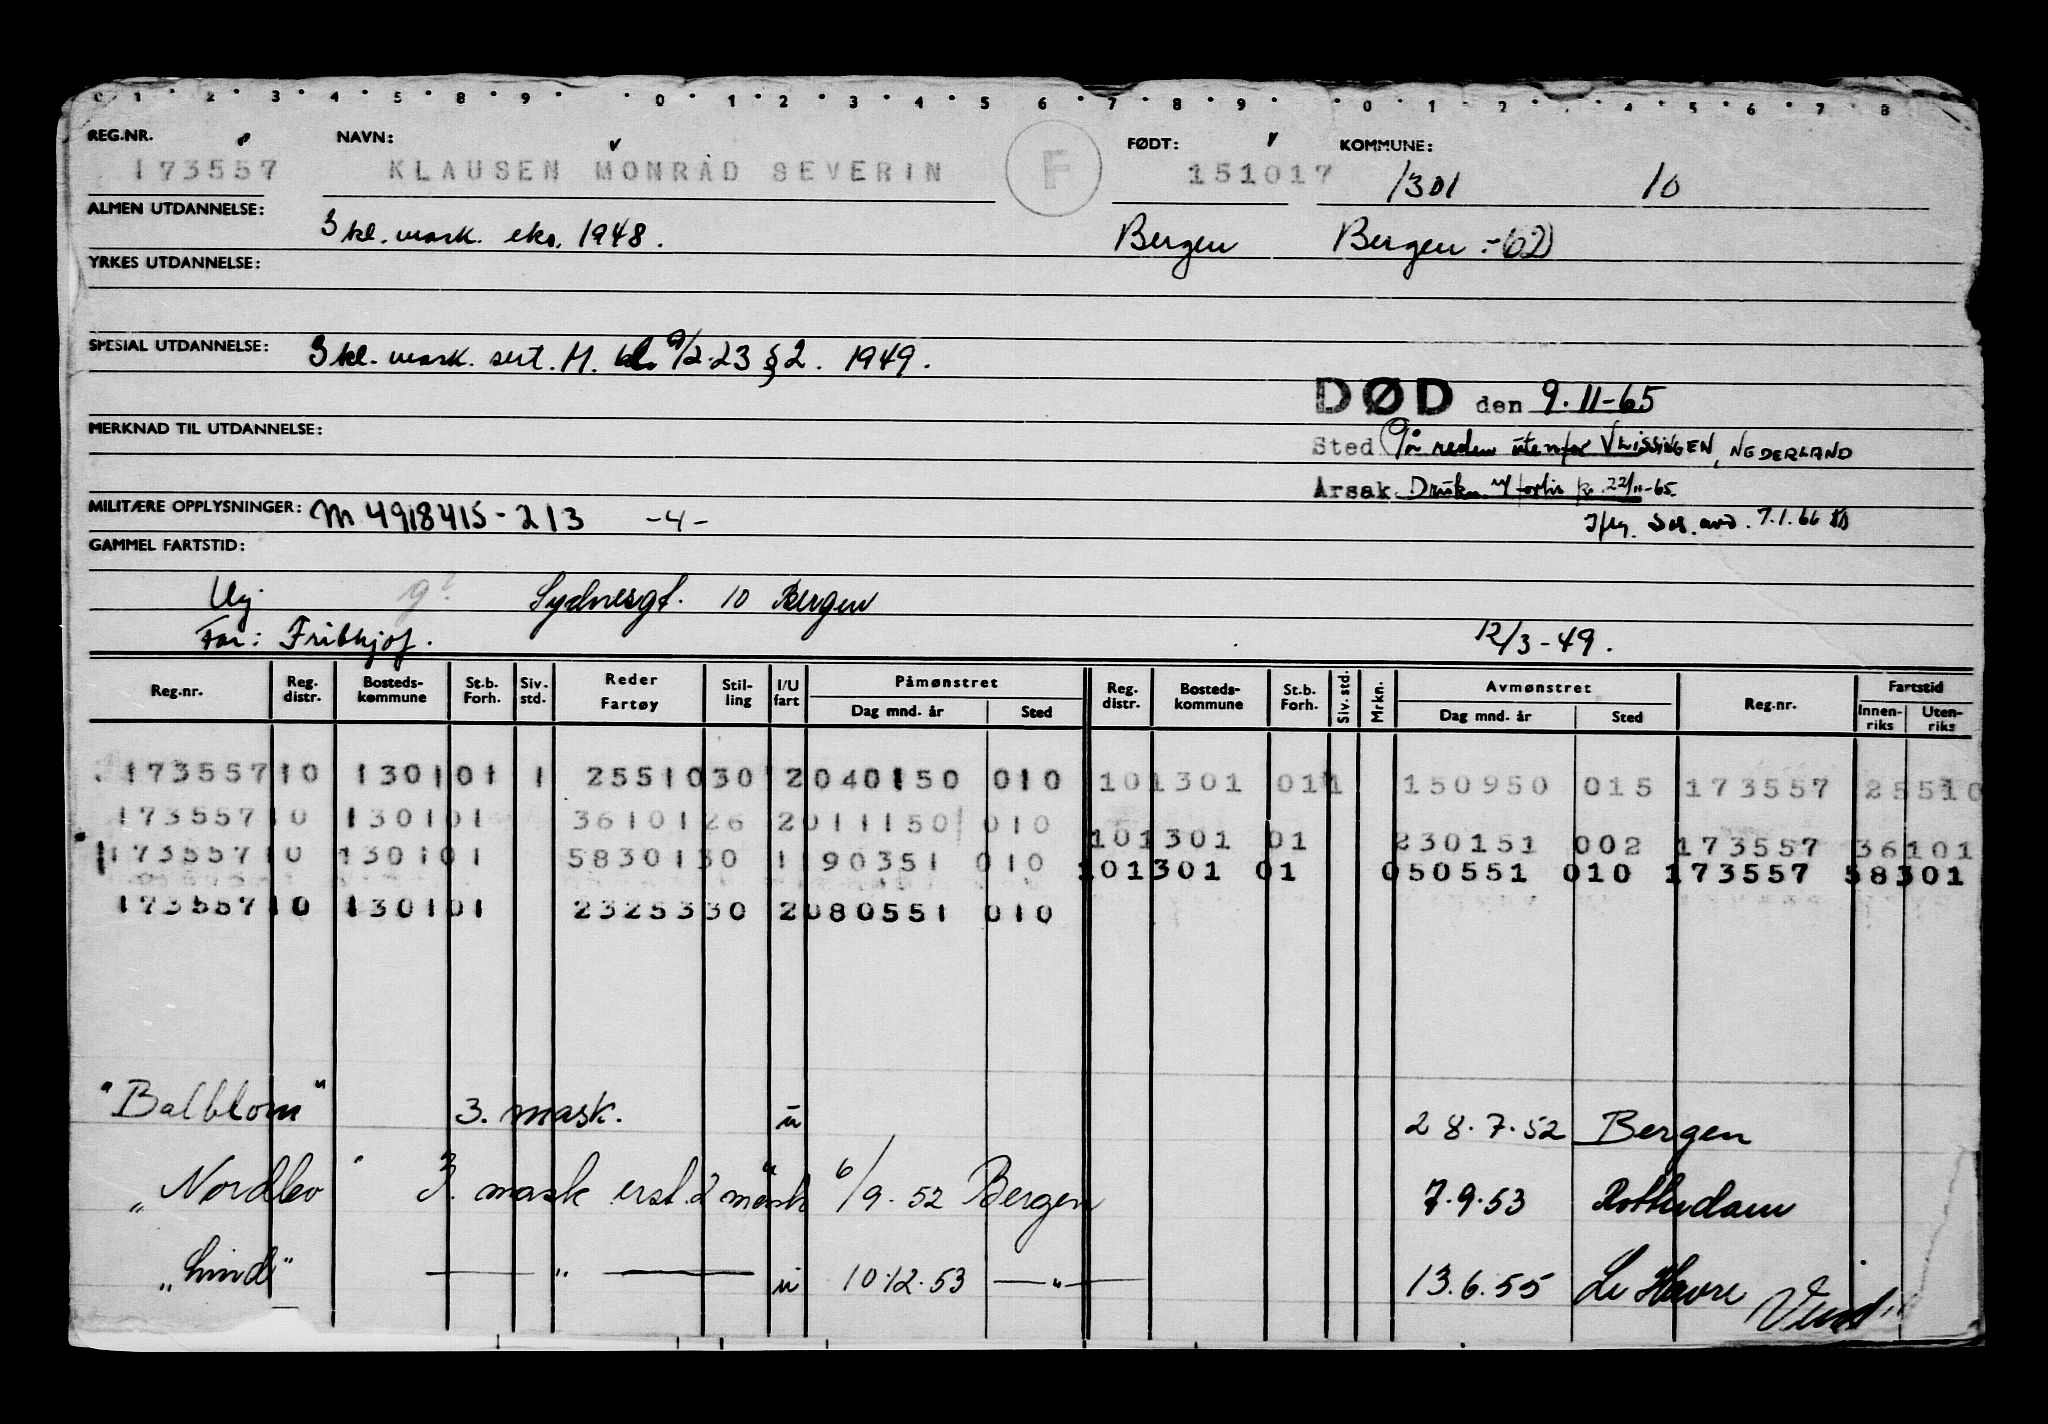 0 1 2 3 4 5 8 9 0 1 2 3 4 5 6 7 8 9 0 1 2 4 5 6 7 8
REG.NR. NAVN: FØDT: KOMMUNE:
173557 KLAUSEN MONRAD SEVERIN F 151017 1301 10
ALMEN UTDANNELSE: 3 kl. mask. eks. 1948. Bergen Bergen :-62)
YRKES UTDANNELSE:
SPESIAL UTDANNELSE: 3 kl. mask. sert. M. 9/2-23 § 2. 1949.
DØD den 9.11-65
MERKNAD TIL UTDANNELSE: Sted På reden utenfor VLISSINGEN, NEDERLAND
Årsak Drukn. 22/11-65.
MILITÆRE OPPLYSNINGER: M 4918415-213 -4-
avd. 7.1.66
GAMMEL FARTSTID:
Ug. Sydnesgt. 10 Bergen
Far: Frithjof. 12/3-49.
Reg.nr. Reg. distr. Bosteds-kommune St.b. Forh. Siv-std. Reder Fartøy Stil-ling I/U fart Påmønstret Dag mnd. år Sted Reg. distr. Bosteds-kommune St.b. Forh. Siv.std. Mrkn. Avmønstret Dag mnd. år Sted Reg.nr. Fartstid Innen-riks Uten-riks
17355710 130101 1 2551030 2040150 010 101301 011 150950 015 173557 25510
17355710 130101 3610126 2011150 010 101301 01 230151 002 173557 36101
17355710 130101 5830130 1190351 010 101301 01 050551 010 173557 58301
17355710 130101 2325330 2080551 010
"Balblom" 3. mask. u 28.7.52 Bergen
"Nordlev" 3. mask erst. 2 mask u 6/9.52 Bergen 7.9.53 Rotterdam
"Lind" — " — u 10.12.53 — " — 13.6.55 Le Havre